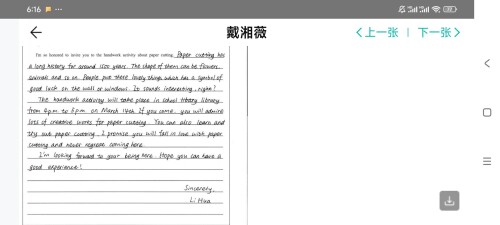 6:16
戴湘薇
<上一张 | 下一张>
I'm so honored to invite you to the handwork activity about paper cutting. Paper cutting has
a long history for around 1500 years. The shape of them can be flowers,
animals and so on. People put these lovely things which has a symbol of
good luck on the wall or windows. It sounds interesting, right?
The handwork activity will take place in school library
from 4pm to 5pm on March 14th. If you come, you will admire
lots of creative works for paper cutting. You can also learn and
try out paper cutting. I promise you will fall in love with paper
cutting and never regrese coming here.
I'm looking forward to your being here. Hope you can have a
good experience!
Sincerely,
Li Hua